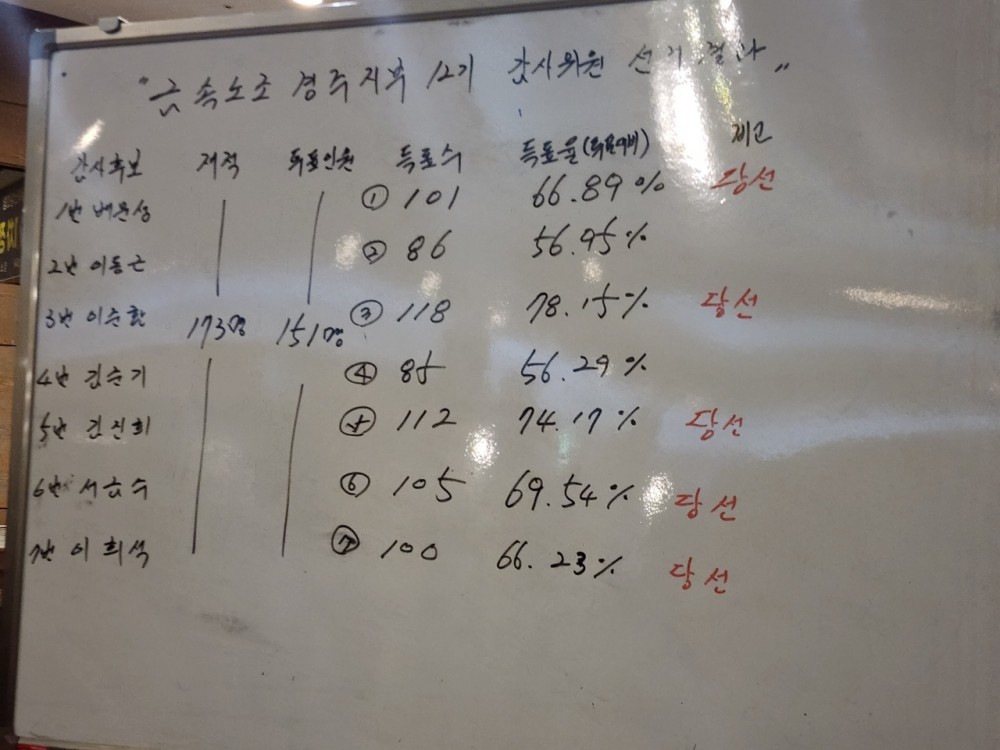 "금속노조 경주지부 12기 감사위원 선거결과"
감사후보 재적 투표인원 득표수 득표율(투표대비) 비고
1번 배문성 ① 101 66.89% 당선
2번 이동근 ② 86 56.95%
3번 이순환 173명 151명 ③ 118 78.15% 당선
4번 김순기 ④ 85 56.29%
5번 김진희 ⑤ 112 74.17% 당선
6번 서금수 ⑥ 105 69.54% 당선
7번 이희석 ⑦ 100 66.23% 당선